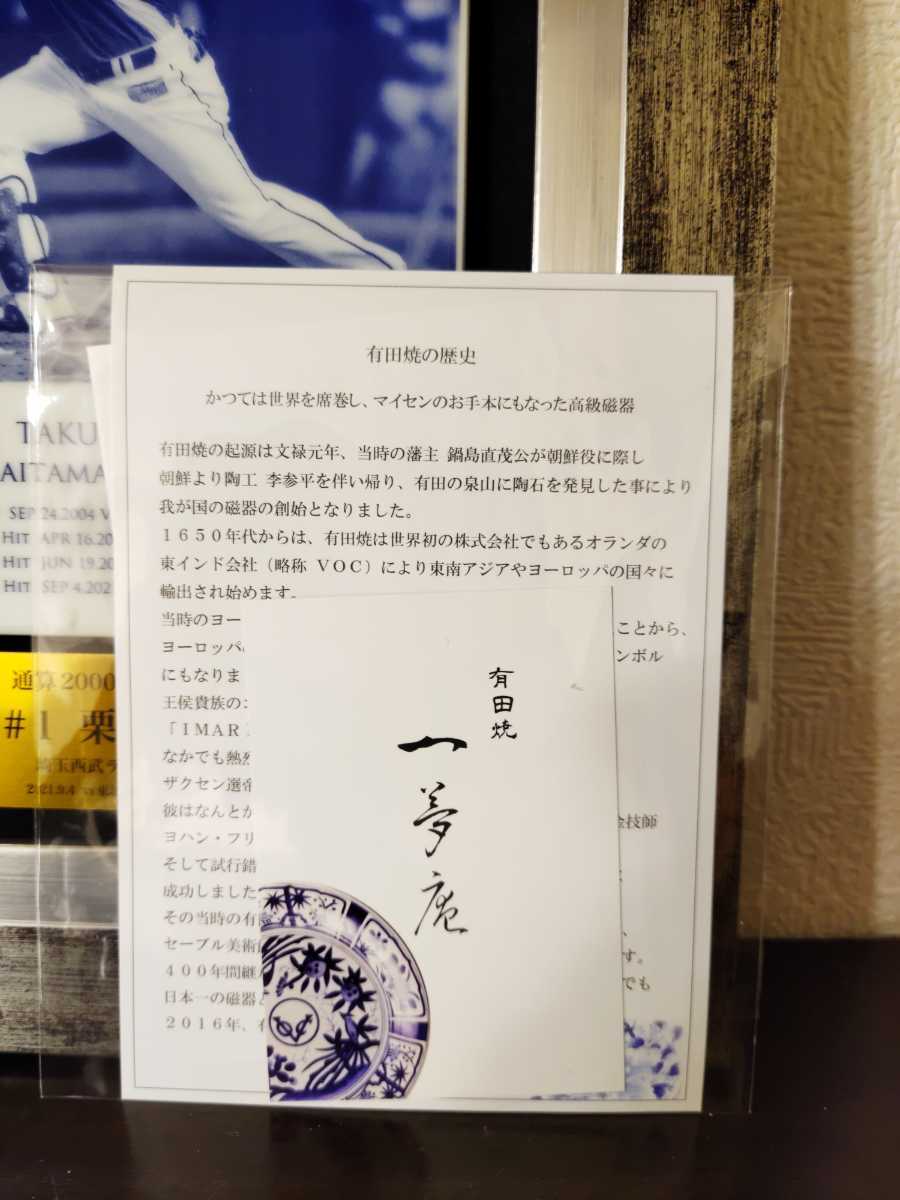 TAKU
AITAMA
SEP 24.2004 V
HIT APR 16.20
HIT JUN 19.20
HIT SEP 4.202
通算2000
#1 栗
埼玉西武ラ
2021.9.4
有田焼の歴史
かつては世界を席巻し、マイセンのお手本にもなった高級磁器
有田焼の起源は文禄元年、当時の藩主 鍋島直茂公が朝鮮役に際し
朝鮮より陶工 李参平を伴い帰り、有田の泉山に陶石を発見した事により
我が国の磁器の創始となりました。
1650年代からは、有田焼は世界初の株式会社でもあるオランダの
東インド会社（略称 VOC）により東南アジアやヨーロッパの国々に
輸出され始めます。
当時のヨー ことから、
ヨーロッパ ンボル
にもなりま
王侯貴族のコ
「IMAR
なかでも熱烈
ザクセン選帝
彼はなんとか 金技師
ヨハン・フリ
そして試行錯
成功しました
その当時の有
セーブル美術 す。
400年間継 でも
日本一の磁器
2016年、有
有田焼
一夢庵